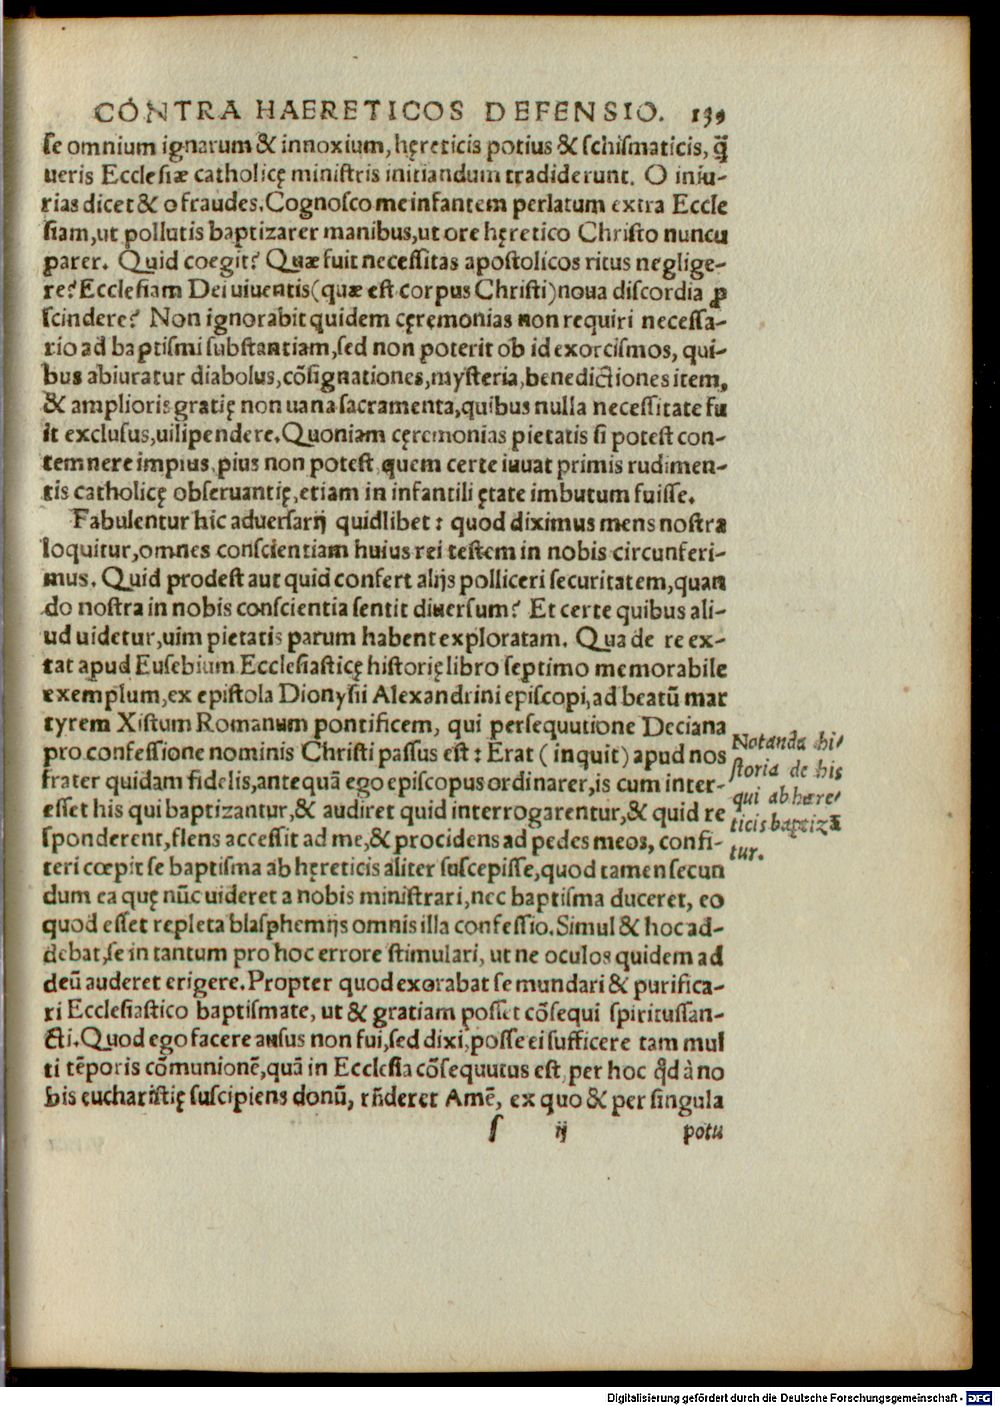 CONTRA HAERETICOS DEFENSIO. 139
se omnium ignarum & innoxium, hęreticis potius & schismaticis, q̃
ueris Ecclesiæ catholicę ministris initiandum tradiderunt. O iniu-
rias dicet & o fraudes. Cognosco me infantem perlatum extra Eccle
siam, ut pollutis baptizarer manibus, ut ore hęretico Christo nuncu
parer. Quid coegit? Quæ fuit necessitas apostolicos ritus neglige-
re? Ecclesiam Dei uiuentis (quæ est corpus Christi) noua discordia ꝑ
scindere? Non ignorabit quidem cęremonias non requiri necessa-
rio ad baptismi substantiam, sed non poterit ob id exorcismos, qui-
bus abiuratur diabolus, cõsignationes, mysteria, benedictiones item,
& amplioris gratię non uana sacramenta, quibus nulla necessitate fu
it exclusus, uilipendere. Quoniam cęremonias pietatis si potest con-
temnere impius, pius non potest, quem certe iuuat primis rudimen-
tis catholicę obseruantię, etiam in infantili ętate imbutum fuisse.
Fabulentur hic aduersarij quidlibet: quod diximus mens nostra
loquitur, omnes conscientiam huius rei testem in nobis circunferi-
mus. Quid prodest aut quid confert alijs polliceri securitatem, quan
do nostra in nobis conscientia sentit diuersum? Et certe quibus ali-
ud uidetur, uim pietatis parum habent exploratam. Qua de re ex-
tat apud Eusebium Ecclesiasticę historię libro septimo memorabile
exemplum, ex epistola Dionysii Alexandrini episcopi, ad beatũ mar
tyrem Xistum Romanum pontificem, qui persequutione Deciana
pro confessione nominis Christi passus est: Erat (inquit) apud nos
frater quidam fidelis, antequã ego episcopus ordinarer, is cum inter-
esset his qui baptizantur, & audiret quid interrogarentur, & quid re
sponderent, flens accessit ad me, & procidens ad pedes meos, confi-
teri cœpit se baptisma ab hęreticis aliter suscepisse, quod tamen secun
dum ea quę nũc uideret a nobis ministrari, nec baptisma duceret, eo
quod esset repleta blasphemijs omnis illa confessio. Simul & hoc ad-
debat, se in tantum pro hoc errore stimulari, ut ne oculos quidem ad
deũ auderet erigere. Propter quod exorabat se mundari & purifica-
ri Ecclesiastico baptismate, ut & gratiam posset cõsequi spiritussan-
cti. Quod ego facere ausus non fui, sed dixi, posse ei sufficere tam mul
ti tẽporis cõmunionẽ, quã in Ecclesia cõsequutus est, per hoc qđ à no
bis eucharistię suscipiens donũ, rñderet Amẽ, ex quo & per singula
s ij potu
Notanda hi-
storia de his
qui ab hære-
ticis baptizã
tur.
Digitalisierung gefördert durch die Deutsche Forschungsgemeinschaft - DFG